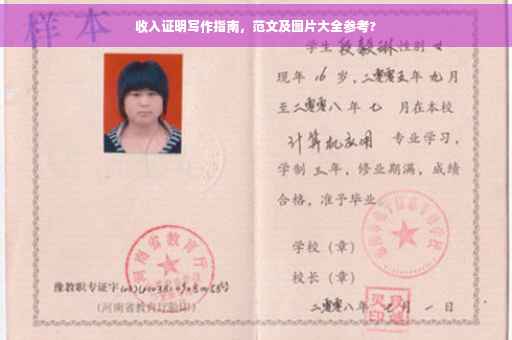 收入证明写作指南，范文及图片大全参考?
样本
学生段毅琳性别 女
现年 16 岁，二零零五年 九月
至二零零八年 七 月在本校
计算机应用 专业学习，
学制 三 年，修业期满，成绩
合格，准予毕业
学校（章）
校长（章）
二零零八年 七 月 一 日
河南省教育厅
豫教职专证字
(河南省教育厅验印)